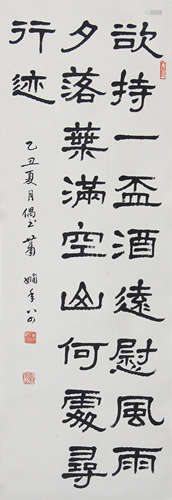 欲持一盃酒遠慰風雨
夕落葉滿空山何處尋
行迹
乙丑夏月偶書蕭嫻年八四